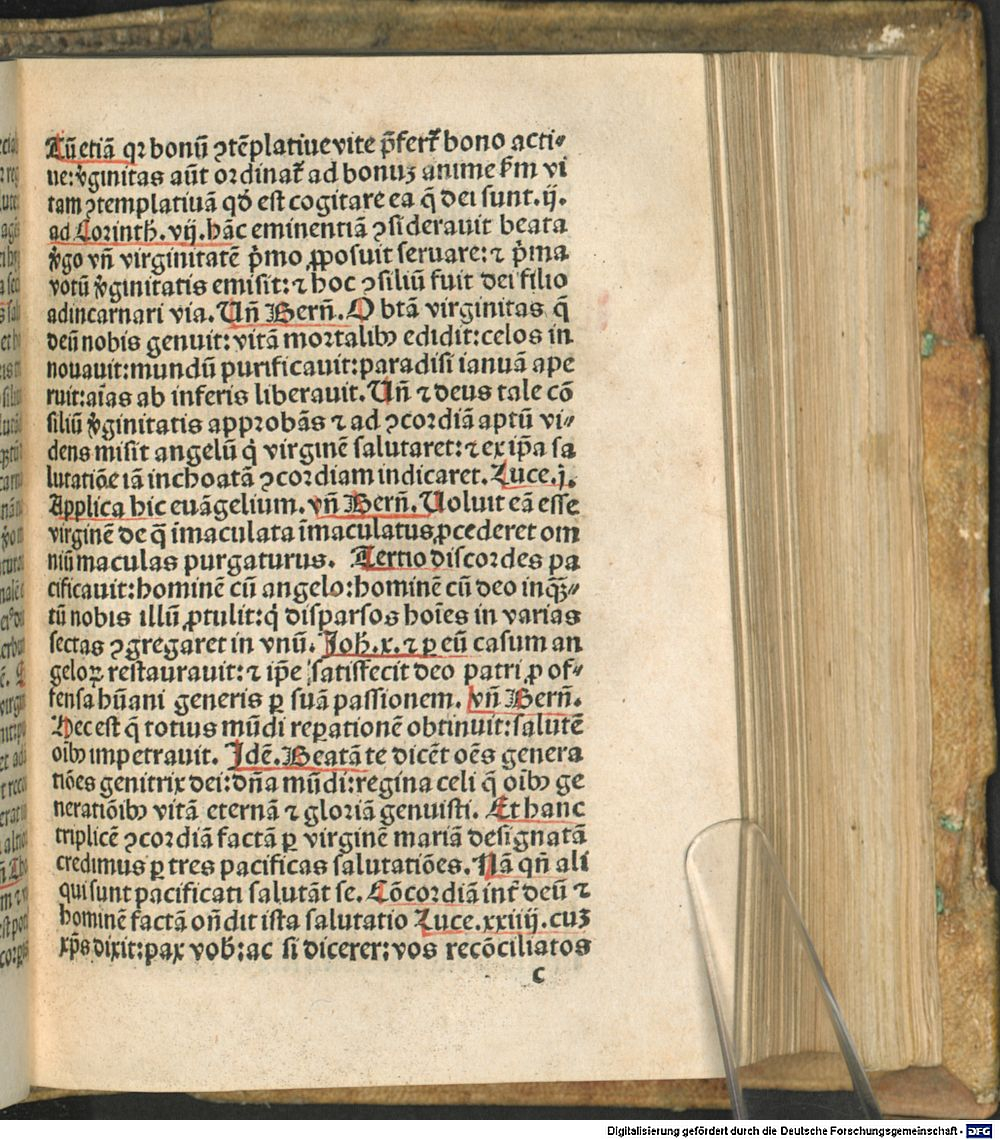 Tū etiā qꝛ bonū ꝯtēplatiue vite p̄fert᷑ bono acti⸗
ue: v̓ginitas aūt ordinat᷑ ad bonuʒ anime ẜm vi
tam ꝯtemplatiuā qd̓ est cogitare ea q̄ dei sunt. ij.
ad Corinth. vij. hāc eminentiā ꝯsiderauit beata
v̓go vn̄ virginitatē p̓mo ꝓposuit seruare: ⁊ p̓ma
votū v̓ginitatis emisit: ⁊ hoc ꝯsiliū fuit dei filio
ad incarnari via. Un̄ Bern̄. O btā virginitas q̄
deū nobis genuit: vitā mortalibꝰ edidit: celos in
nouauit: mundū purificauit: paradisi ianuā ape
ruit: aīas ab inferis liberauit. Un̄ ⁊ deus tale cō
siliū v̓ginitatis approbās ⁊ ad ꝯcordiā aptū vi⸗
dens misit angelū q̓ virginē salutaret: ⁊ ex ip̄a sa
lutatiōe iā inchoatā ꝯcordiam indicaret. Luce. j.
Applica hic euāgelium. vn̄ Bern̄. Uoluit eā esse
virginē de q̄ īmaculata īmaculatus ꝓcederet om
niū maculas purgaturus. Tertio discordes pa
cificauit: hominē cū angelo: hominē cū deo inqꝫ̄⸗
tū nobis illū ꝓtulit: q̓ disparsos hoīes in varias
sectas ꝯgregaret in vnū. Joh. x. ⁊ ꝑ eū casum an
geloꝝ restaurauit: ⁊ ip̄e satisfecit deo patri ꝓ of⸗
fensa hūani generis ꝑ suā passionem. vn̄ Bern̄.
Hec est q̄ totius mūdi repationē obtinuit: salutē
oībꝰ impetrauit. Idē. Beatā te dicēt oēs genera
tiōes genitrix dei: dn̄a mūdi: regina celi q̄ oībꝰ ge
neratiōibꝰ vitā eternā ⁊ gloriā genuisti. Et hanc
triplicē ꝯcordiā factā ꝑ virginē mariā designatā
credimus ꝑ tres pacificas salutatiōes. Nā qn̄ ali
qui sunt pacificati salutāt se. Cōcordiā int̄ deū ⁊
hominē factā on̄dit ista salutatio Luce. xxiiij. cuʒ
xp̄s dixit: pax vob̄: ac si diceret: vos recōciliatos
c
Digitalisierung gefördert durch die Deutsche Forschungsgemeinschaft - DFG